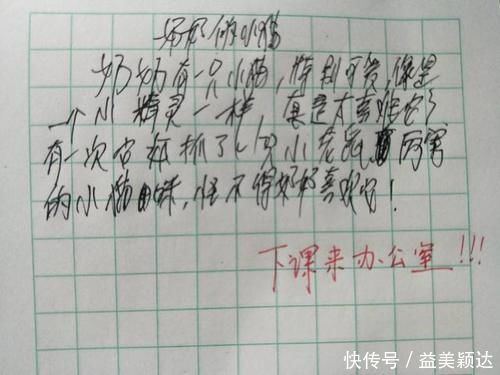 奶奶的小猫
奶奶有一只小猫，特别可爱，像是
一个小精灵一样，真是太喜欢它了
有一次它在抓了一只小老鼠，厉害
的小猫咪，怪不得奶奶喜欢它！
下课来办公室!!!
快传号／益美颖达